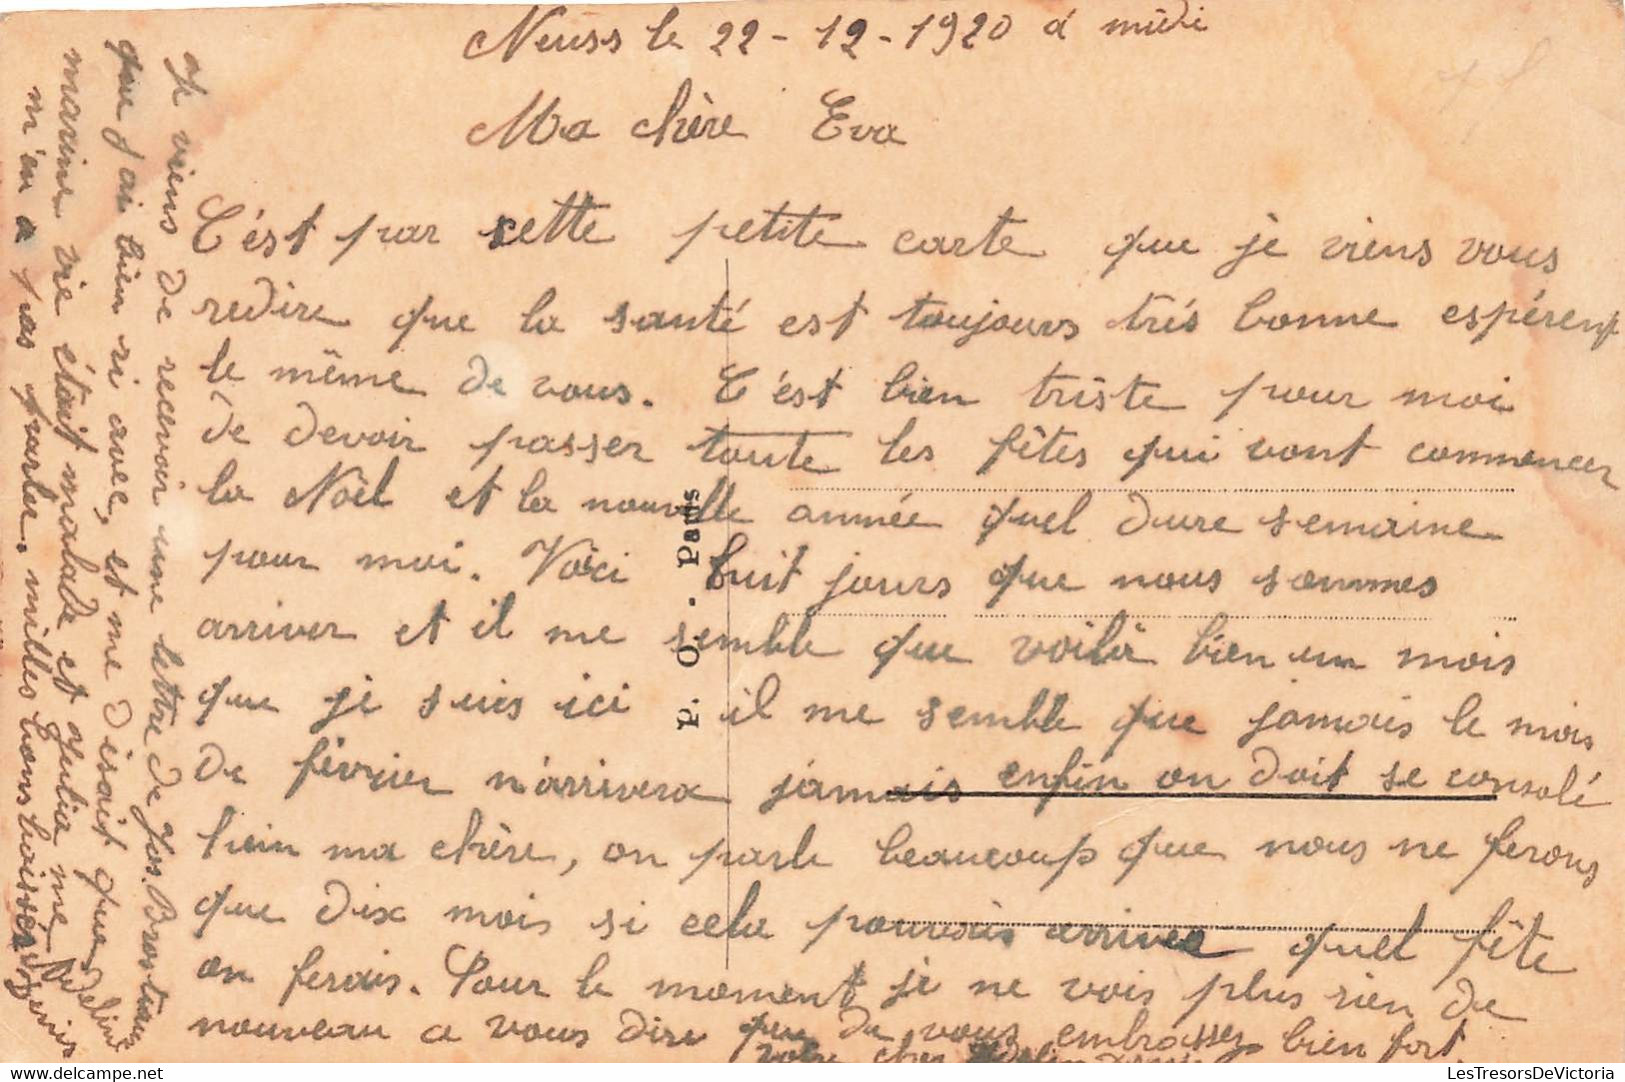 Neuss le 22-12-1920 à midi
Ma chère Eva
C'est par cette petite carte que je viens vous
redire que la santé est toujours très bonne espérent
le même de vous. C'est bien triste pour moi
de devoir passer toute les fêtes qui vont commencer
la Noël et la nouvelle année quel dure semaine
pour moi. Voici huit jours que nous sommes
arriver et il me semble que voilà bien un mois
que je suis ici il me semble que jamais le mois
de février n'arrivera jamais enfin on doit se consolé
bien ma chère, on parle beaucoup que nous ne ferons
que dix mois si cela pouvais arriver quel fête
on ferais. Pour le moment je ne vois plus rien de
nouveau a vous dire que de vous embrasser bien fort
votre cher
P. O. - Paris
Je viens de recevoir une lettre de Jos.
que j'ai bien ri avec, et me disait que
marine vie était malade et Julia me
m'en a pas parler. milles bons baisers
LesTresorsDeVictoria
www.delcampe.net